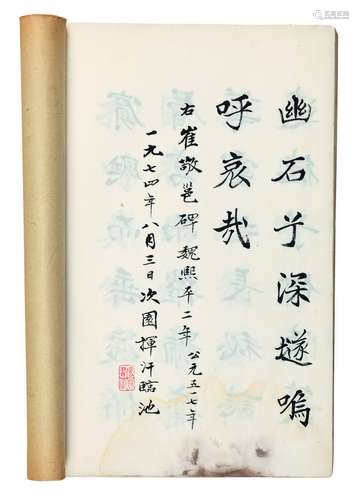 幽石兮深嗚
呼哀哉
右崔敬邕碑魏熙平二年公元五一七年
一九七四年八月三日次園揮汗臨池